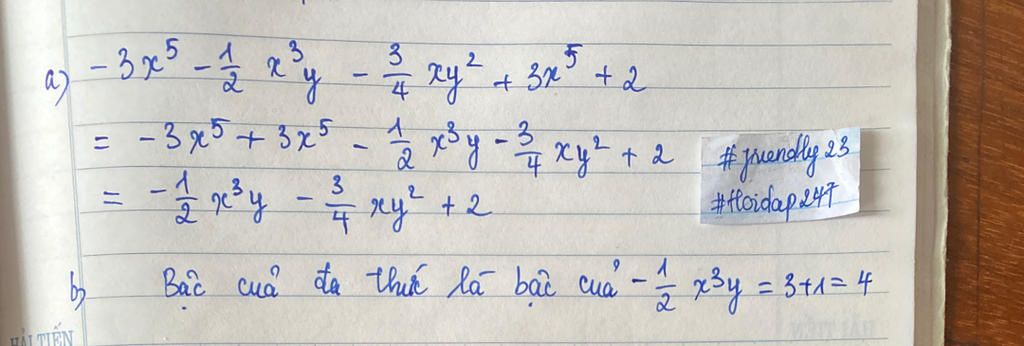 a) -3x⁵ - 1/2 x³y - 3/4 xy² + 3x⁵ + 2
= -3x⁵ + 3x⁵ - 1/2 x³y - 3/4 xy² + 2
= -1/2 x³y - 3/4 xy² + 2
#friendly23
#Hoidap247
b) Bậc cuả đa thức là bậc cuả -1/2 x³y = 3+1 = 4
HẢI TIẾN